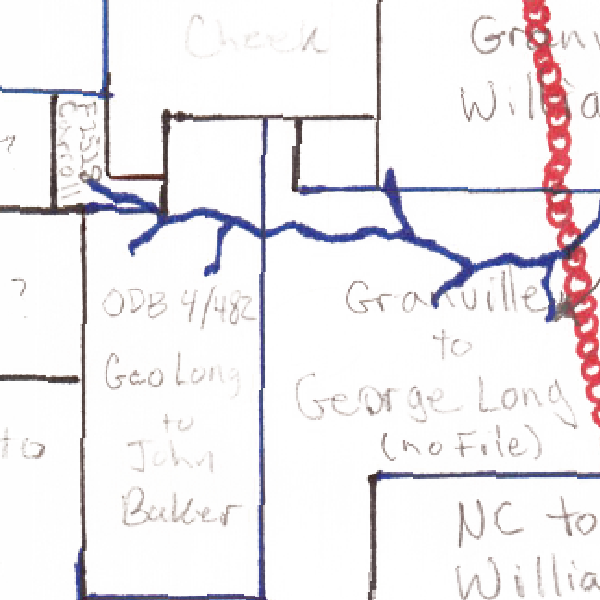 Cheek
Gran
Willia
?
Carroll
?
ODB 4/482
Geo Long
to
John
Baker
Granville
to
George Long
(no File)
to
NC to
Willia